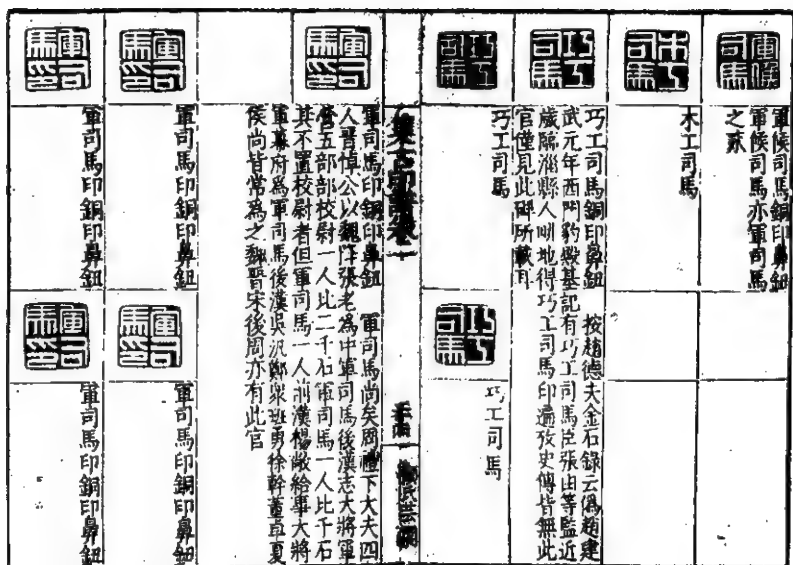 軍候司馬
軍候司馬銅印鼻鈕
軍候司馬亦軍司馬
之貳
木工司馬
木工司馬
巧工司馬
巧工司馬銅印鼻鈕　按趙德夫金石錄云偽趙建
武元年西門豹殿基記有巧工司馬臣張由等監近
歲臨淄縣人畊地得巧工司馬印遍攷史傳皆無此
官僅見此碑所載耳
巧工司馬
巧工司馬
巧工司馬
巧工司馬
集古印譜卷一
軍司馬印
軍司馬印銅印鼻鈕　軍司馬尚矣周禮下大夫四
人晉悼公以魏絳張老為中軍司馬後漢志大將軍
營五部部校尉一人比二千石軍司馬一人比千石
其不置校尉者但軍司馬一人前漢楊敞給事大將
軍幕府為軍司馬後漢吳汎鄭眾班勇徐幹董卓夏
侯尚皆常為之魏晉宋後周亦有此官
軍司馬印
軍司馬印銅印鼻鈕
軍司馬印
軍司馬印銅印鼻鈕
軍司馬印
軍司馬印銅印鼻鈕
軍司馬印
軍司馬印銅印鼻鈕